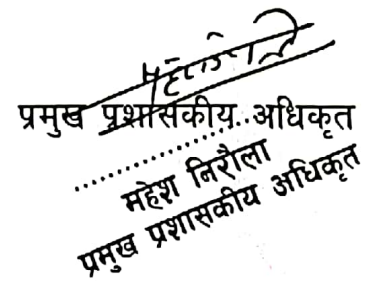 प्रमुख प्रशासकीय अधिकृत
महेश निरौला
प्रमुख प्रशासकीय अधिकृत